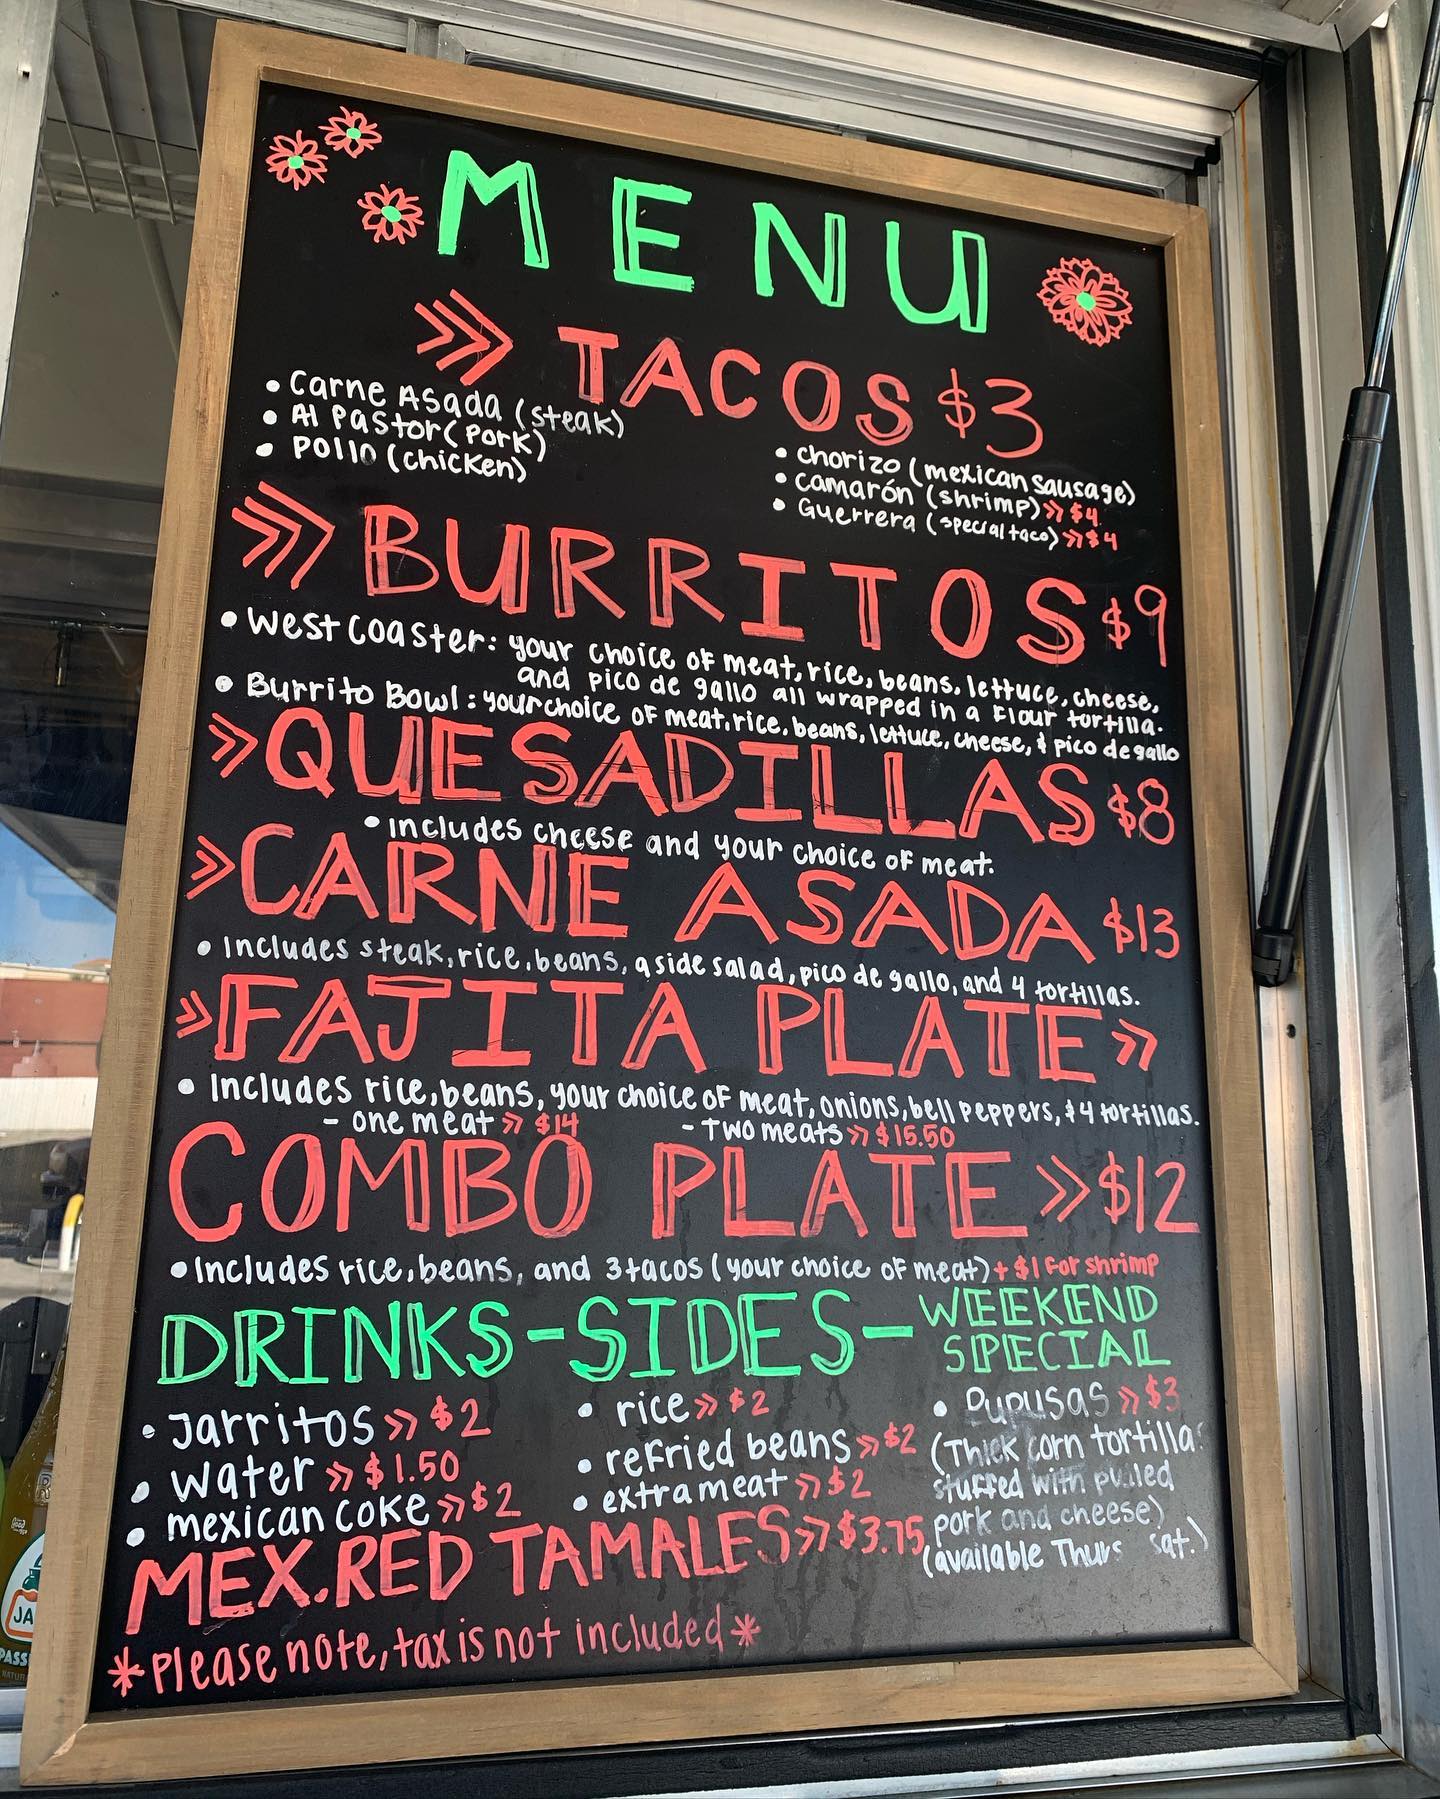 MENU
>>> TACOS $3
• Carne Asada (steak)
• Al Pastor (Pork)
• Pollo (chicken)
• chorizo (mexican sausage)
• camarón (shrimp) >> $4
• Guerrera (special taco) >> $4
>>> BURRITOS $9
• West Coaster: your choice of meat, rice, beans, lettuce, cheese,
and pico de gallo all wrapped in a flour tortilla.
• Burrito Bowl: your choice of meat, rice, beans, lettuce, cheese, & pico de gallo
>> QUESADILLAS $8
• Includes cheese and your choice of meat.
>> CARNE ASADA $13
• Includes steak, rice, beans, a side salad, pico de gallo, and 4 tortillas.
>> FAJITA PLATE >>
• Includes rice, beans, your choice of meat, onions, bell peppers, & 4 tortillas.
- one meat >> $14 - Two meats >> $15.50
COMBO PLATE >> $12
• Includes rice, beans, and 3 tacos (your choice of meat) + $1 for shrimp
DRINKS - SIDES - WEEKEND SPECIAL
• Jarritos >> $2
• Water >> $1.50
• mexican coke >> $2
• rice >> $2
• refried beans >> $2
• extra meat >> $2
• Pupusas >> $3
(Thick corn tortillas
stuffed with pulled
pork and cheese)
(available Thurs Sat.)
MEX. RED TAMALES >> $3.75
*Please note, tax is not included*
JA
PASS
NATUR